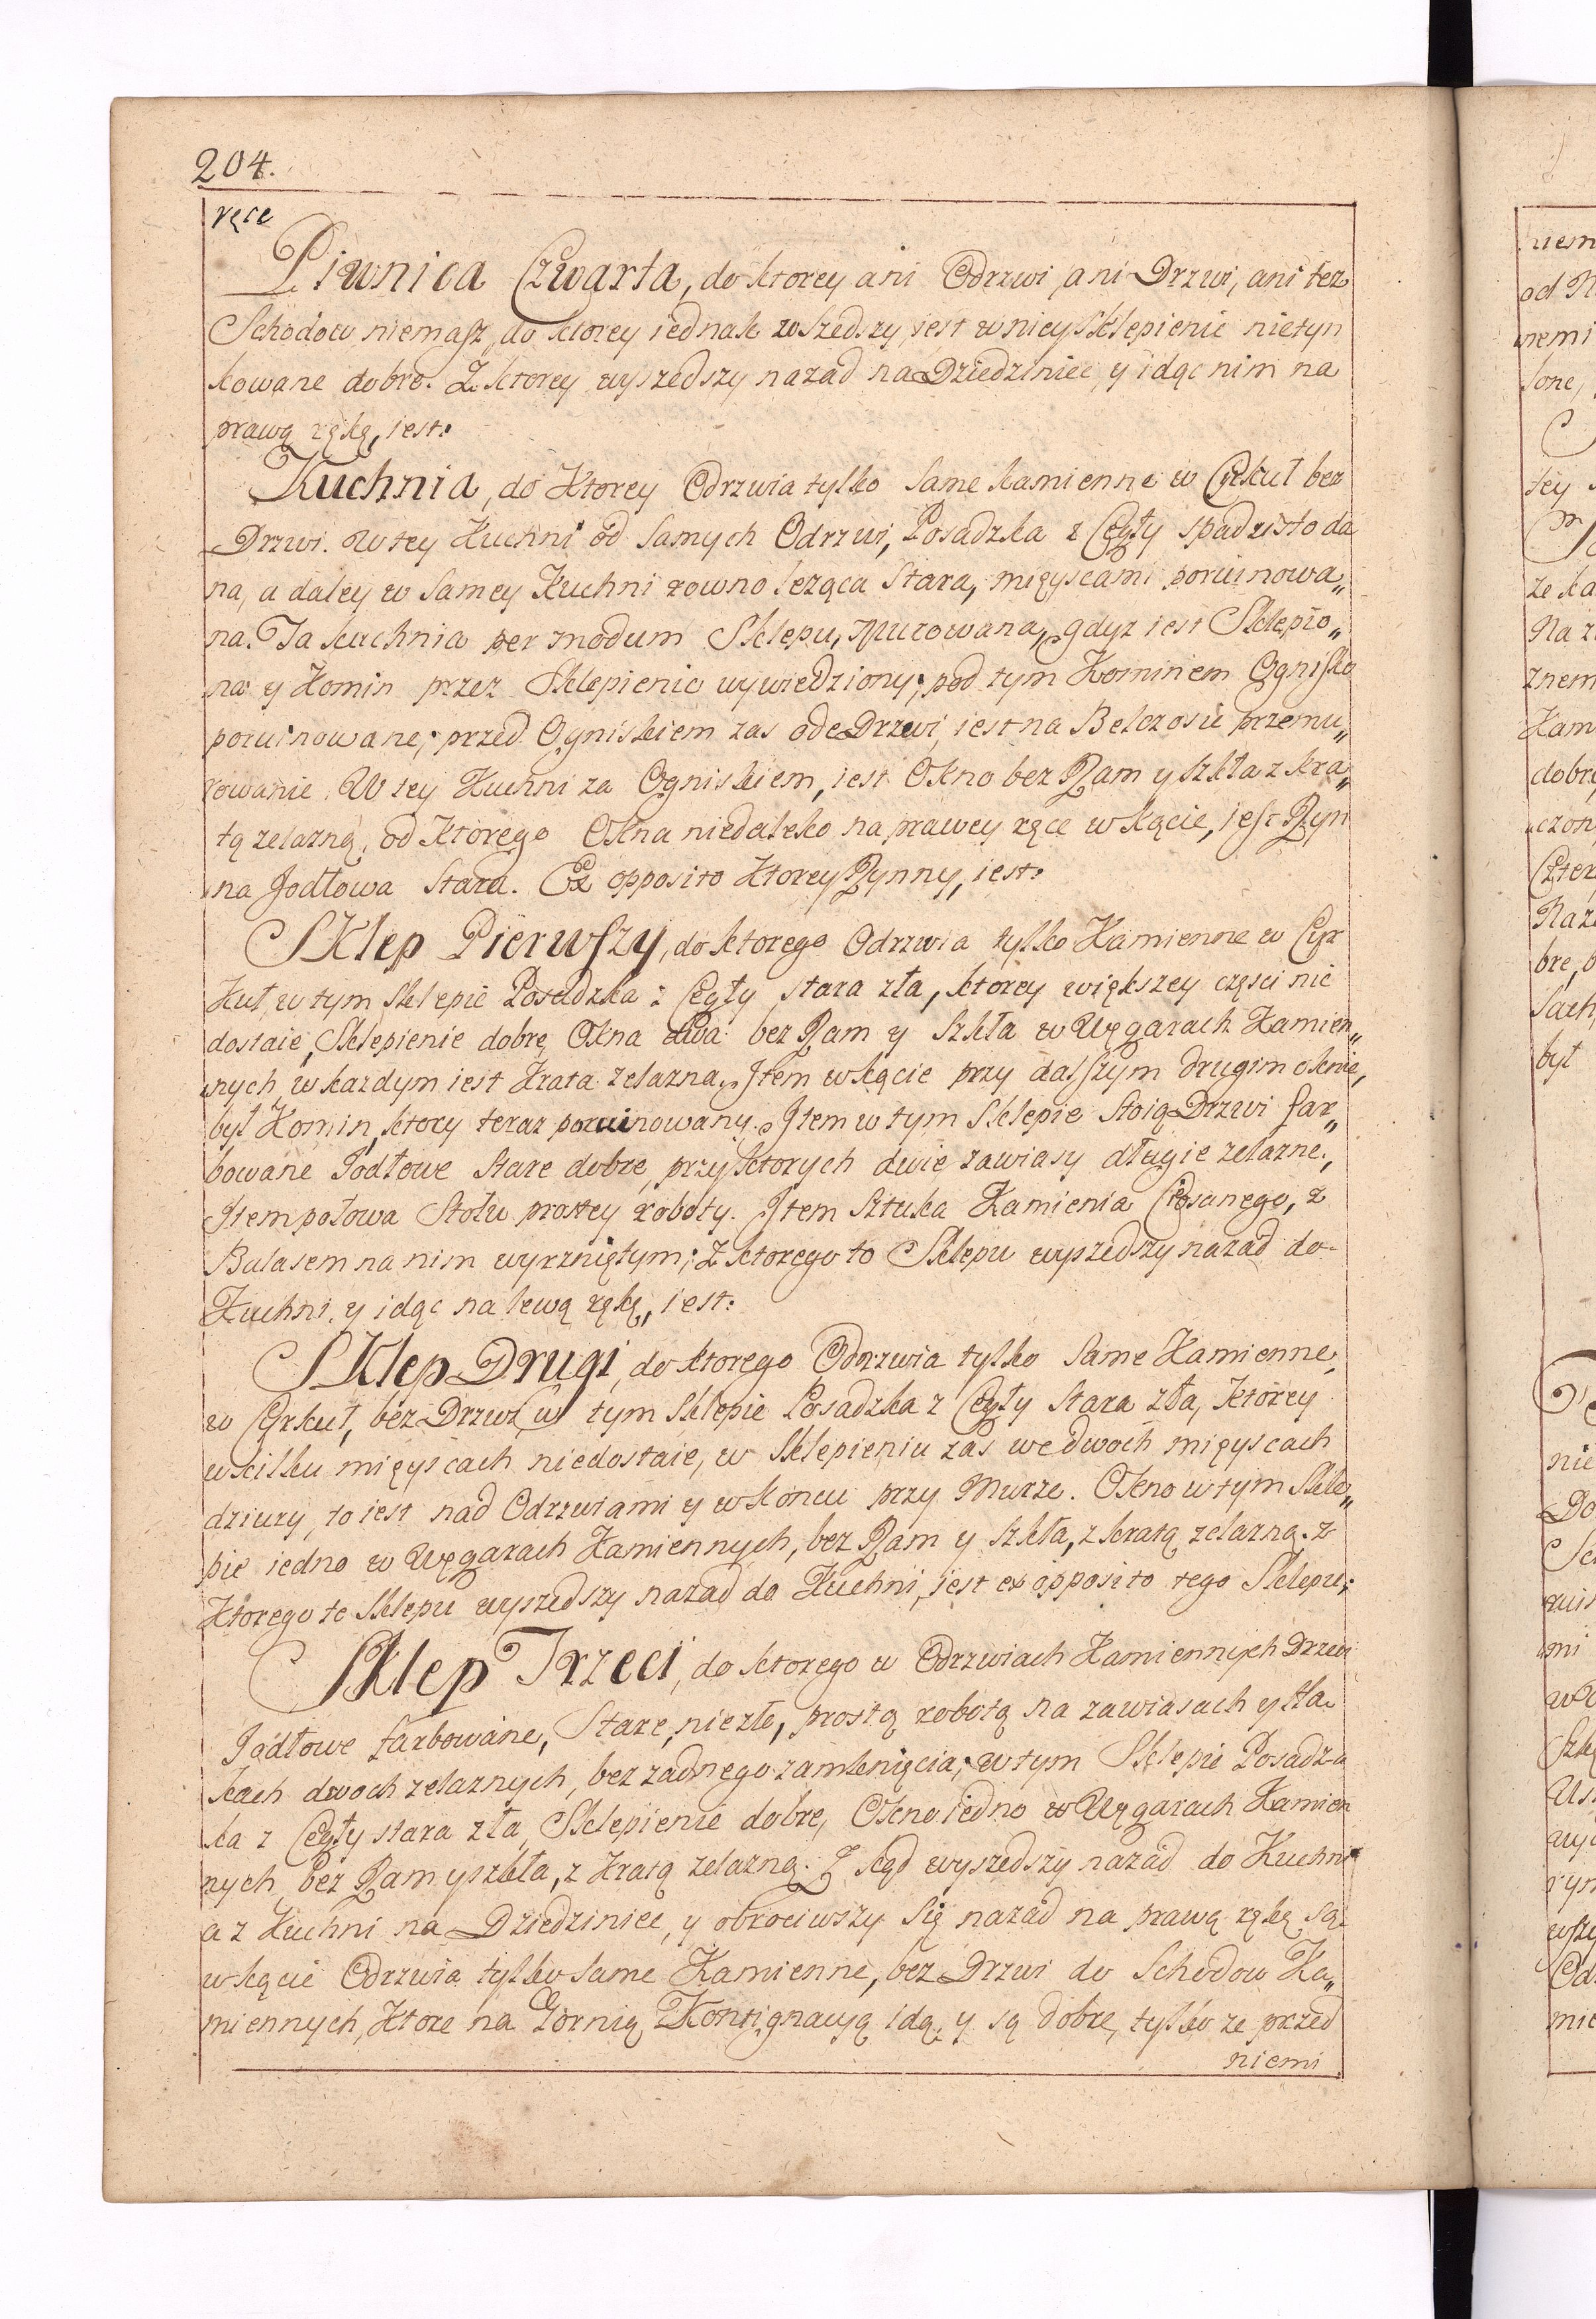 204.
ręce
Piwnica Czwarta, do ktorey ani Odrzwi, ani Drzwi, ani tez
Schodow niemasz, do ktorey iednak wszedszy iest w niey Sklepienie nietyn
kowane dobre. Z ktorey wyszedszy nazad na Dziedziniec, y idąc nim na
prawą rękę, iest:
Kuchnia, do Ktorey Odrzwia tylko same kamienne w Cyrkuł bez
Drzwi. W tey Kuchni od samych Odrzwi, Posadzka z Cegły spadzisto da
na, a daley w samey Kuchni rowno leząca stara, mięyscami poruinowa„
na. Ta kuchnia per modum Sklepu, Murowana, gdyz iest Sklepio„
na y Komin przez Sklepienie wywiedziony; pod tym Kominem Ognisko
poruinowane; przed Ogniskiem zas ode Drzwi, iest na Belczosie przemu„
rowanie. W tey Kuchni za Ogniskiem, iest Okno bez Ram y szkła z kra„
tą zelazną, od Ktorego Okna niedaleko na prawey ręce w kącie, iest Ryn
na Jodłowa stara. Ex opposito Ktorey Rynny, iest:
Sklep Pierwszy, do ktorego Odrzwia tylko Kamienne w Cyr
kuł, w tym sklepie Posadzka z Cegły stara zła, ktorey większey częsci nie
dostaie, Sklepienie dobre, Okna dwa bez Ram y Szkła w Węgarach Kamien„
nych, w kazdym iest Krata zelazna, Jtem w kącie przy dalszym drugim oknie,
był Komin, ktory teraz poruinowany. Jtem w tym Sklepie stoią Drzwi far„
bowane Jodłowe stare dobre, przy ktorych dwie zawiasy długie zelazne.,
Jtem połowa stołu prostey roboty. Jtem sztuka Kamienia Ciosanego, z
Balasem na nim wyrzniętym; Z ktorego to Sklepu wyszedszy nazad do
Kuchni, y idąc na lewą rękę, iest:
Sklep Drugi, do ktorego Odrzwia tylko same Kamienne,
w Cyrkuł, bez Drzwi, w tym sklepie Posadzka z Cegły stara zła, Ktorey
w kilku mięyscach niedostaie, w sklepieniu zas we dwoch mięyscach
dziury, to iest nad Odrzwiami y w koncu przy Murze. Okno w tym Skle„
pie iedno w Węgarach Kamiennych, bez Ram y szkła, z kratą zelazną. z
Ktorego to sklepu wyszedszy nazad do Kuchni, iest ex opposito tego Sklepu;
Sklep Trzeci, do ktorego w Odrzwiach Kamiennych Drzwi
Jodłowe farbowane, stare, niezłe, prostą robotą na zawiasach y ha
kach dwoch zelaznych, bez zadnego zamknięcia; w tym Sklepie Posadz
ka z Cegły stara zła, Sklepienie dobre, Okno iedno w Węgarach Kamien
nych, bez Ram y szkła, z Kratą zelazną. Z kąd wyszedszy nazad do Kuchni
a z Kuchni na Dziedziniec, y obrociwszy się nazad na prawą rękę są
w kącie Odrzwia tylko same Kamienne, bez Drzwi do Schodow Ka„
miennych, Ktore na Gornią Kontignacyą idą, y są dobre, tylko ze przed
niemi